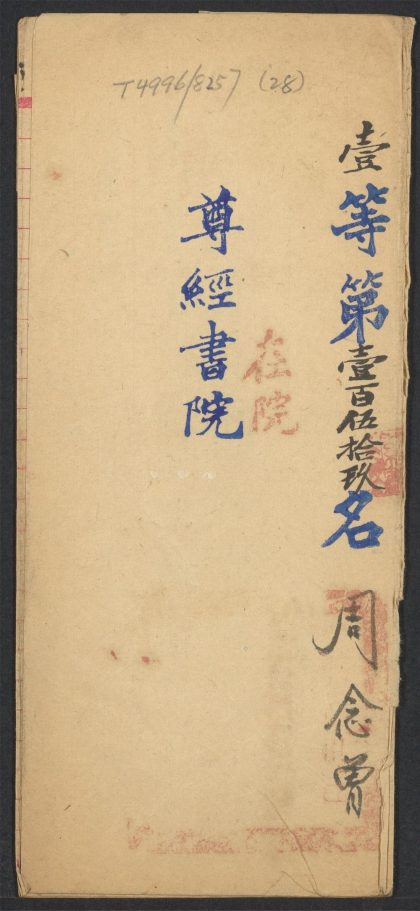 T4996/8257 (28)
壹等第壹百伍拾玖名 周念曾
在院
尊經書院